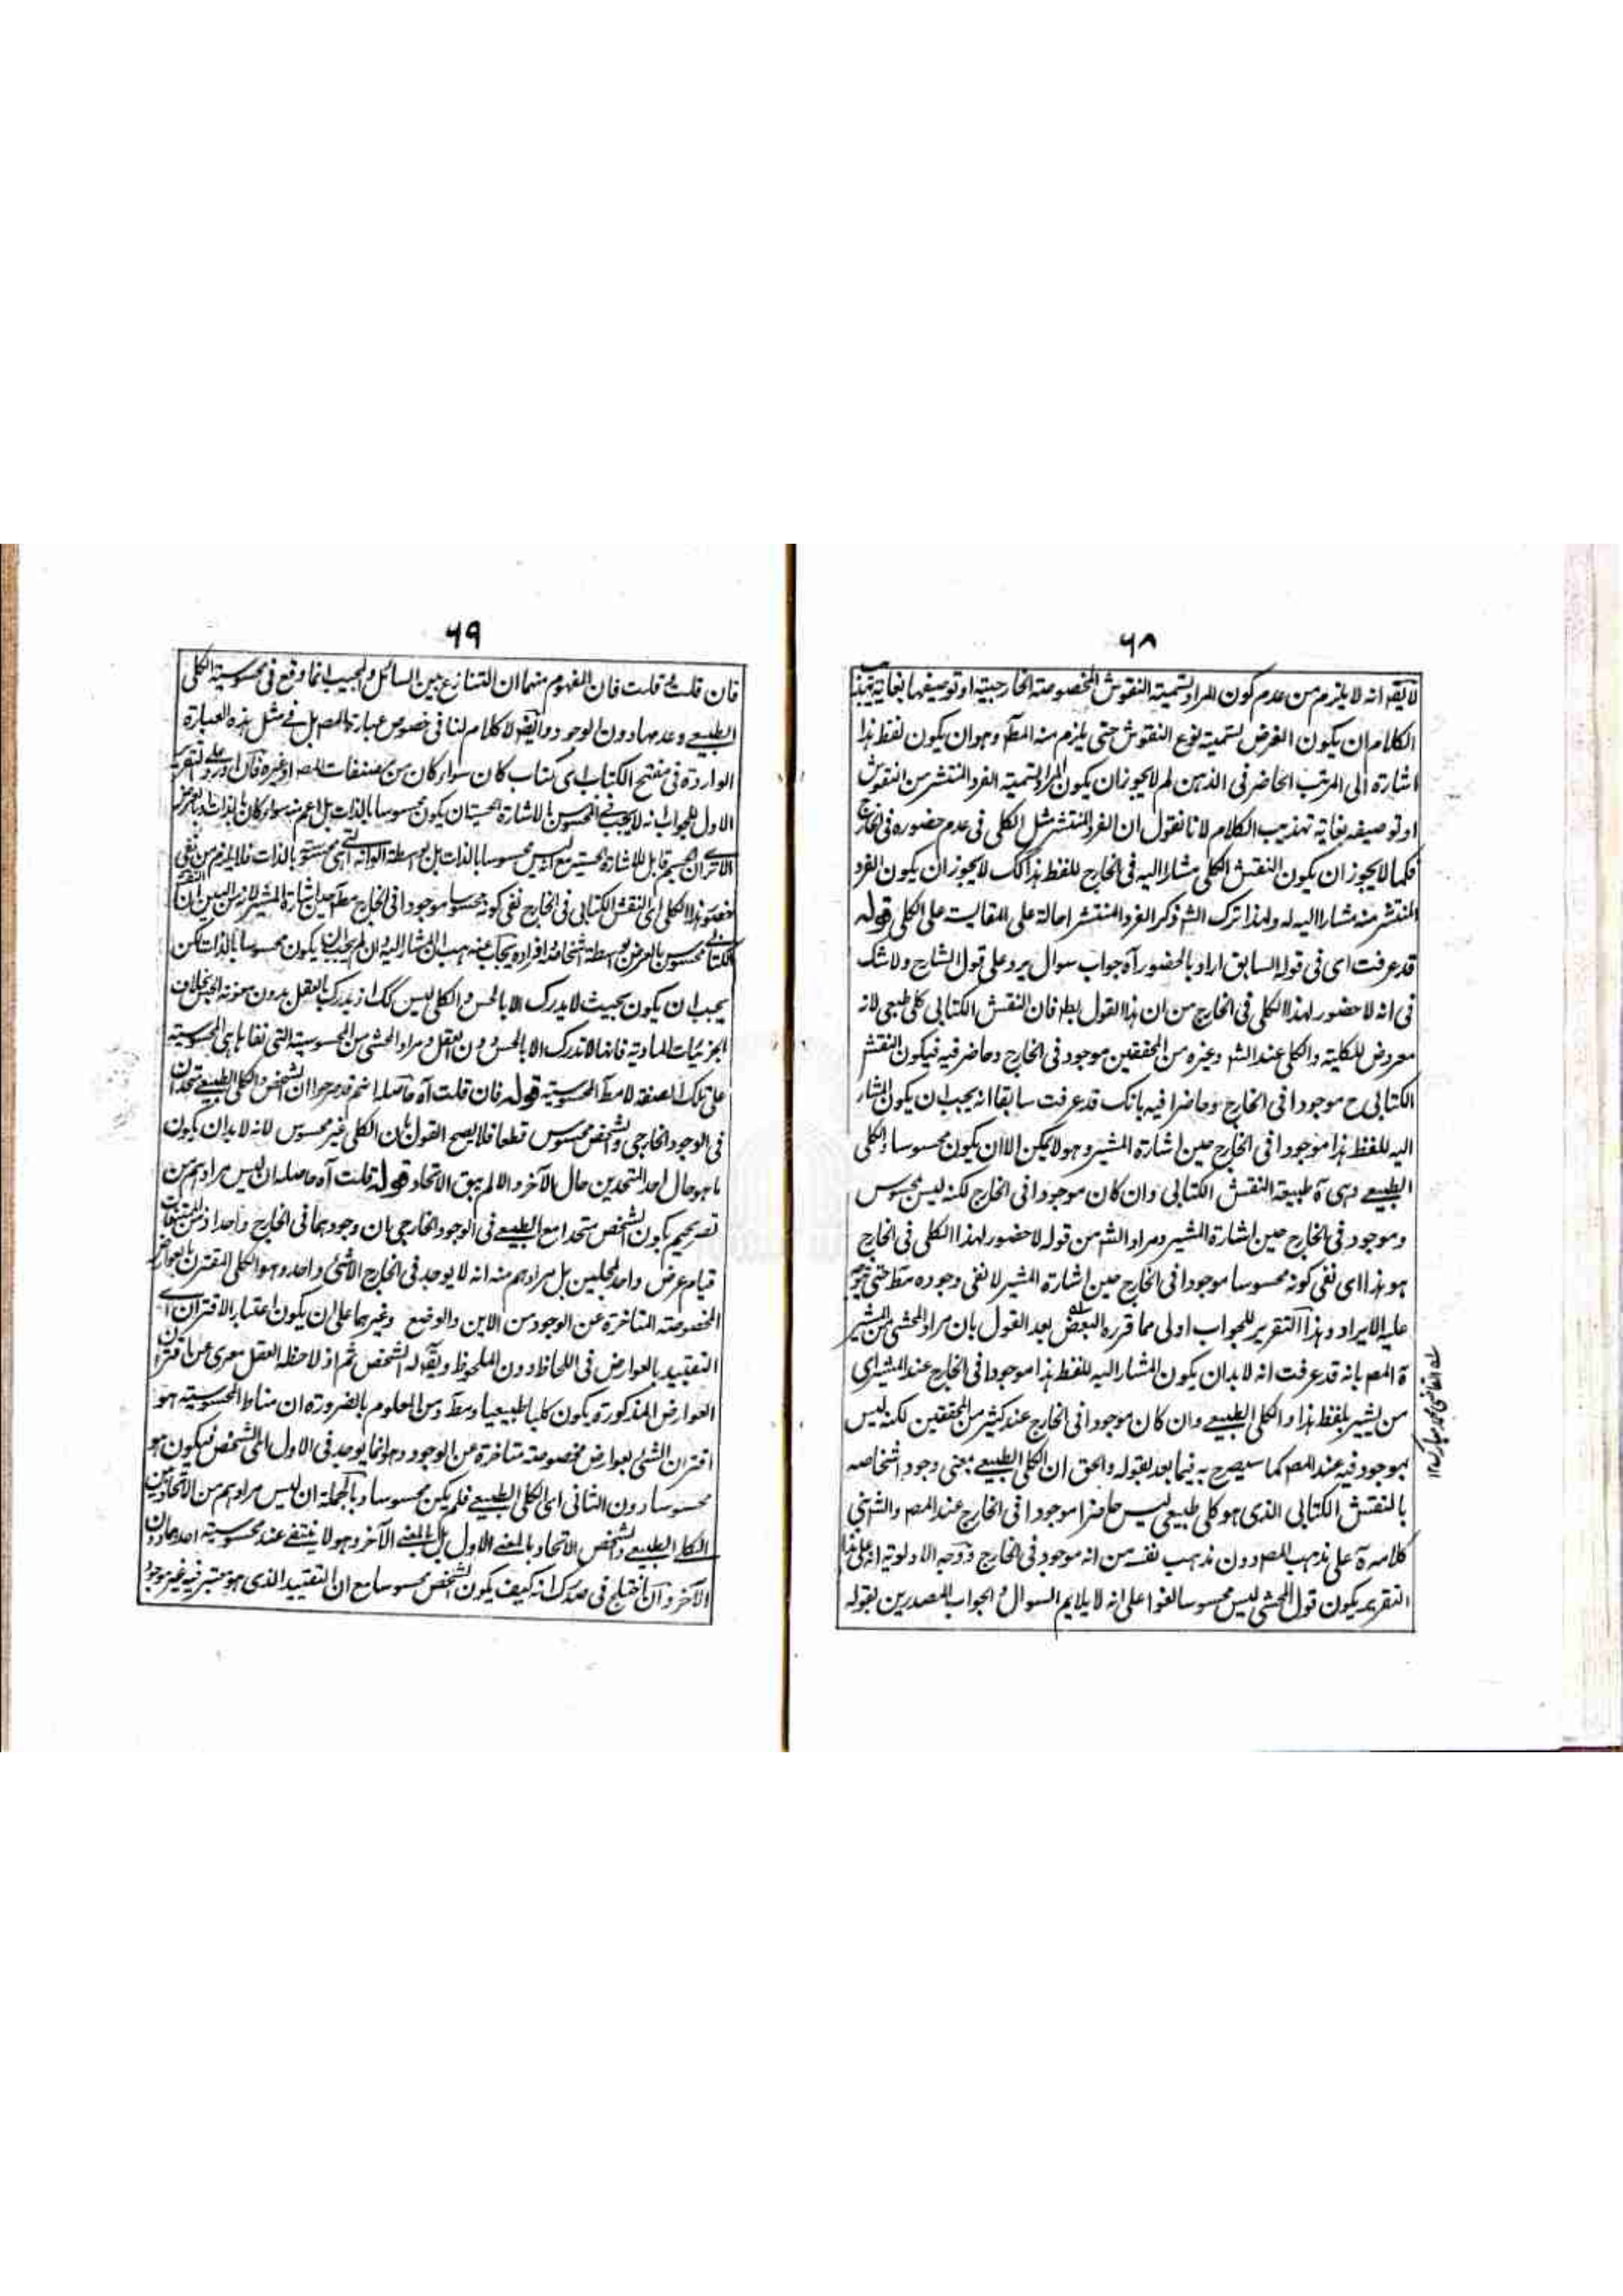 ٦٨
لا يقه انه لا يلزم من عدم كون المراد تسمية النقوش المخصوصة الخارجية او توصيفها بغاية تهذيب
الكلام ان يكون الغرض تسمية نوع النقوش حتى يلزم منه المط وهو ان يكون لفظ هذا
اشارة الى المرتب الحاضر فى الذهن لم لا يجوز ان يكون المراد تسمية الفرد المنتشر من النقوش
او توصيفه بغاية تهذيب الكلام لانا نقول ان الفرد المنتشر مثل الكلى فى عدم حضوره فى الخارج
فكما لا يجوز ان يكون النقش الكلى مشارا اليه فى الخارج للفظ هذا كك لا يجوز ان يكون الفرد
المنتشر منه مشارا اليه له ولهذا ترك الشر ذكر الفرد المنتشر احالة على المقايسة على الكلى قوله
قد عرفت اى فى قوله السابق اراد بالحضور آه جواب سوال يرد على قول الشارح ولا شك
فى انه لا حضور لهذا الكلى فى الخارج من ان هذا القول بط فان النقش الكتابى كلى طبعى لانه
معروض للكلية والكلى عند الشر وغيره من المحققين موجود فى الخارج وحاضر فيه فيكون النقش
الكتابى ح موجودا فى الخارج وحاضرا فيه بانك قد عرفت سابقا انه يجب ان يكون المشار
اليه للفظ هذا موجودا فى الخارج حين اشارة المشير وهو لا يمكن الا ان يكون محسوسا والكلى
الطبيعے وهى ة طبيعة النقش الكتابى وان كان موجودا فى الخارج لكنه ليس بمحسوس
وموجود فى الخارج حين اشارة المشير ومراد الشر من قوله لا حضور لهذا الكلى فى الخارج
هو هذا اى نفى كونه محسوسا موجودا فى الخارج حين اشارة المشير لا نفى وجوده مط حتى يتوجه
عليه الايراد وهذا التقرير للجواب اولى مما قرره البعض بعد القول بان مراد المحشى من المشير
ة المصر بانه قد عرفت انه لا بد ان يكون المشار اليه للفظ هذا موجودا فى الخارج عند المشير اى
من يشير بلفظ هذا والكلى الطبيعے وان كان موجودا فى الخارج عند كثير من المحققين لكنه ليس
بموجود فيه عند المصر كما سيصرح به فيما بعد بقوله والحق ان الكلى الطبيعے بمعنى وجود اشخاصه
بالنقش الكتابى الذى هو كلى طبيعى ليس حاضرا موجودا فى الخارج عند المصر والشر بنى
كلامه ة على مذهب المصر دون مذهب نفسه من انه موجود فى الخارج ووجه الاولوية انه على هذا
التقرير يكون قول المحشى ليس محسوسا لغوا على انه لا يلايم السوال والجواب المصدرين بقوله
القاضى محمد مبارك ١٢
٦٩
فان قلت وقلت فان المفهوم منهما ان التنازع بين السائل والمجيب انما وقع فى محسوسية الكلى
الطبيعے وعدمها دون الوجود وايضه لا كلام لنا فى خصوص عبارة المصر بل فے مثل هذه العبارة
الواردة فى مفتتح الكتاب اى كتاب كان سواء كان من مصنفات المصر او غيره فان اورد على التقرير
الاول للجواب انه لا يجب فے المحسوس بالاشارة الحسية ان يكون محسوسا بالذات بل اعم منه سواء كان بالذات او بالعرض
الا ترے ان الجسم قابل للاشارة الحسية مع انه ليس محسوسا بالذات بل بواسطة الوانه التى هى محسوسة بالذات فلا يلزم من نفى
حضور هذا الكلى اى النقش الكتابى فى الخارج نفى كونه محسوسا موجودا فى الخارج مط حين اشارة المشير لانه من البين ان النقش
الكتابے محسوس بالعرض بواسطة اشخاصه وافراده يجاب عنه بان المشار اليه وان لم يجب ان يكون محسوسا بالذات لكن
يجب ان يكون بحيث لا يدرك الا بالحس والكلى ليس كك اذ يدركه العقل بدون معونة الحس بخلاف
الجزئيات المادية فانها لا تدرك الا بالحس دون العقل ومراد المحشى من المحسوسية التى نفاها هى المحسوسية
على تلك الصفة لا مط المحسوسية قوله فان قلت آه حاصله انهم قد صرحوا ان الشخص والكلى الطبيعے متحدان
فى الوجود الخارجى والشخص محسوس قطعا فلا يصح القول بان الكلى غير محسوس لانه لا بد ان يكون
ما هو حال احد المتحدين حال الآخر والا لم يبق الاتحاد قوله قلت آه حاصله ان ليس مرادهم من
تصريحهم بكون الشخص متحدا مع الطبيعے فى الوجود الخارجى بان وجودهما فى الخارج واحد اذ من الممتنعات
قيام عرض واحد بمحلين بل مرادهم منه انه لا يوجد فى الخارج الا شئ واحد وهو الكلى المقترن بالعوارض
المخصوصة المتاخرة عن الوجود من الاين والوضع وغيرهما على ان يكون اعتبار الاقتران اے
التقييد بالعوارض فى اللحاظ دون الملحوظ ويقه له الشخص ثم اذ لاحظه العقل معرى عن اقتران
العوارض المذكورة يكون كليا طبيعيا ومط ومن المعلوم بالضرورة ان مناط المحسوسية هو
اقتران الشئ بعوارض مخصوصة متاخرة عن الوجود وهو انما يوجد فى الاول اى الشخص فيكون هو
محسوسا دون الثانى اى الكلى الطبيعے فلم يكن محسوسا وبالجملة ان ليس مرادهم من الاتحاد بين
الكلى الطبيعے والشخص الاتحاد بالمعنے الاول بل بالمعنے الآخر وهو لا ينتفے عند محسوسية احدهما دون
الآخر وان اختلج فى صدرك انه كيف يكون الشخص محسوسا مع ان التقييد الذى هو معتبر فيه غير موجود